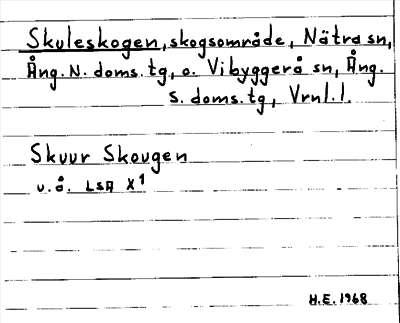 Skuleskogen, skogsområde, Nätra sn,
Ång. N. doms. tg, o. Vibyggerå sn, Ång.
S. doms. tg, Vrnl. l.
Skuur Skougen
u.å. LSA X1
H.E. 1968